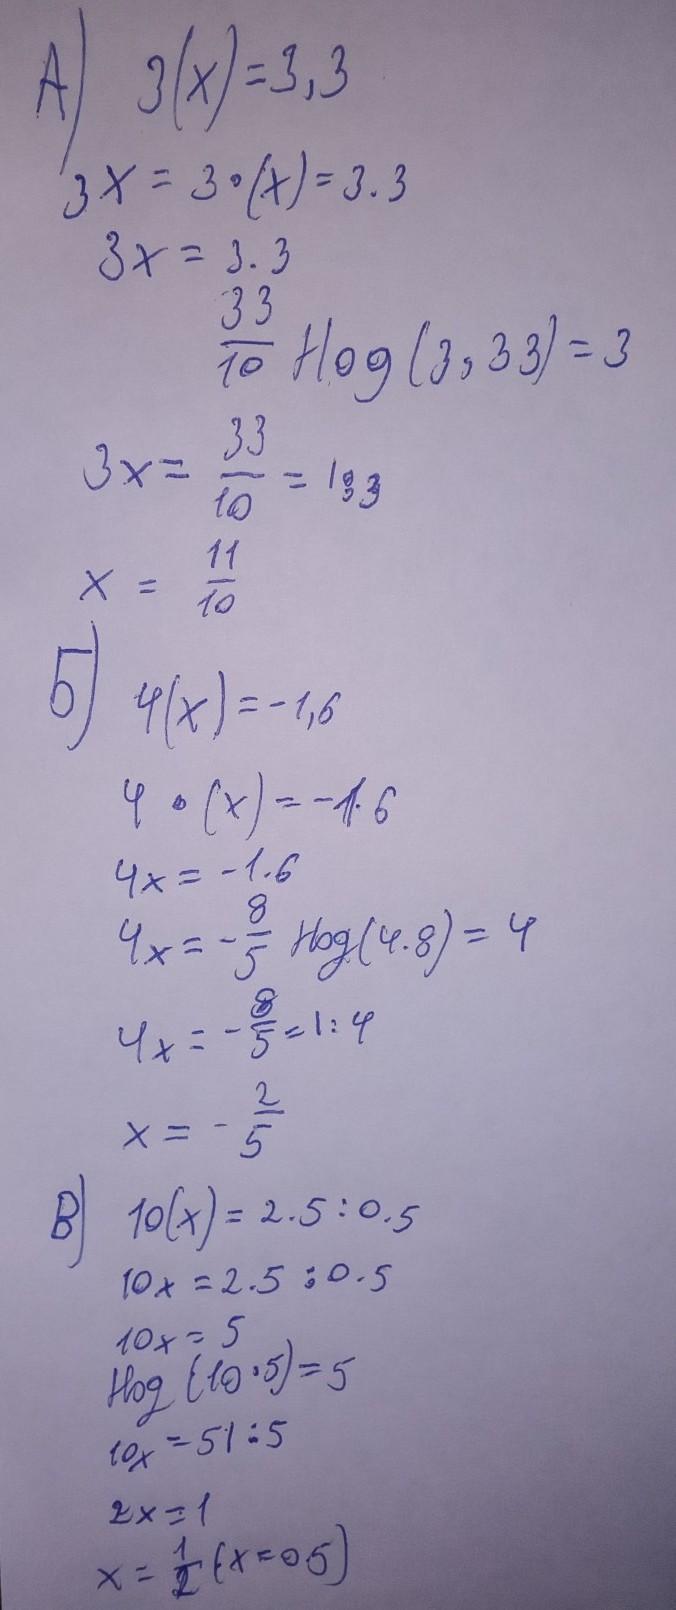 А) 3(x)=3,3
3x = 3•(x)=3.3
3x = 3.3
33/10 Hog(3,33)=3
3x = 33/10 = 1:3
x = 11/10
Б) 4(x)=-1,6
4•(x)=-1.6
4x = -1.6
4x = -8/5 Hog(4.8)=4
4x = -8/5 = 1:4
x = -2/5
В) 10(x)=2.5:0.5
10x=2.5:0.5
10x=5
Hog(10.5)=5
10x=51:5
2x=1
x=1/2 (x=0.5)